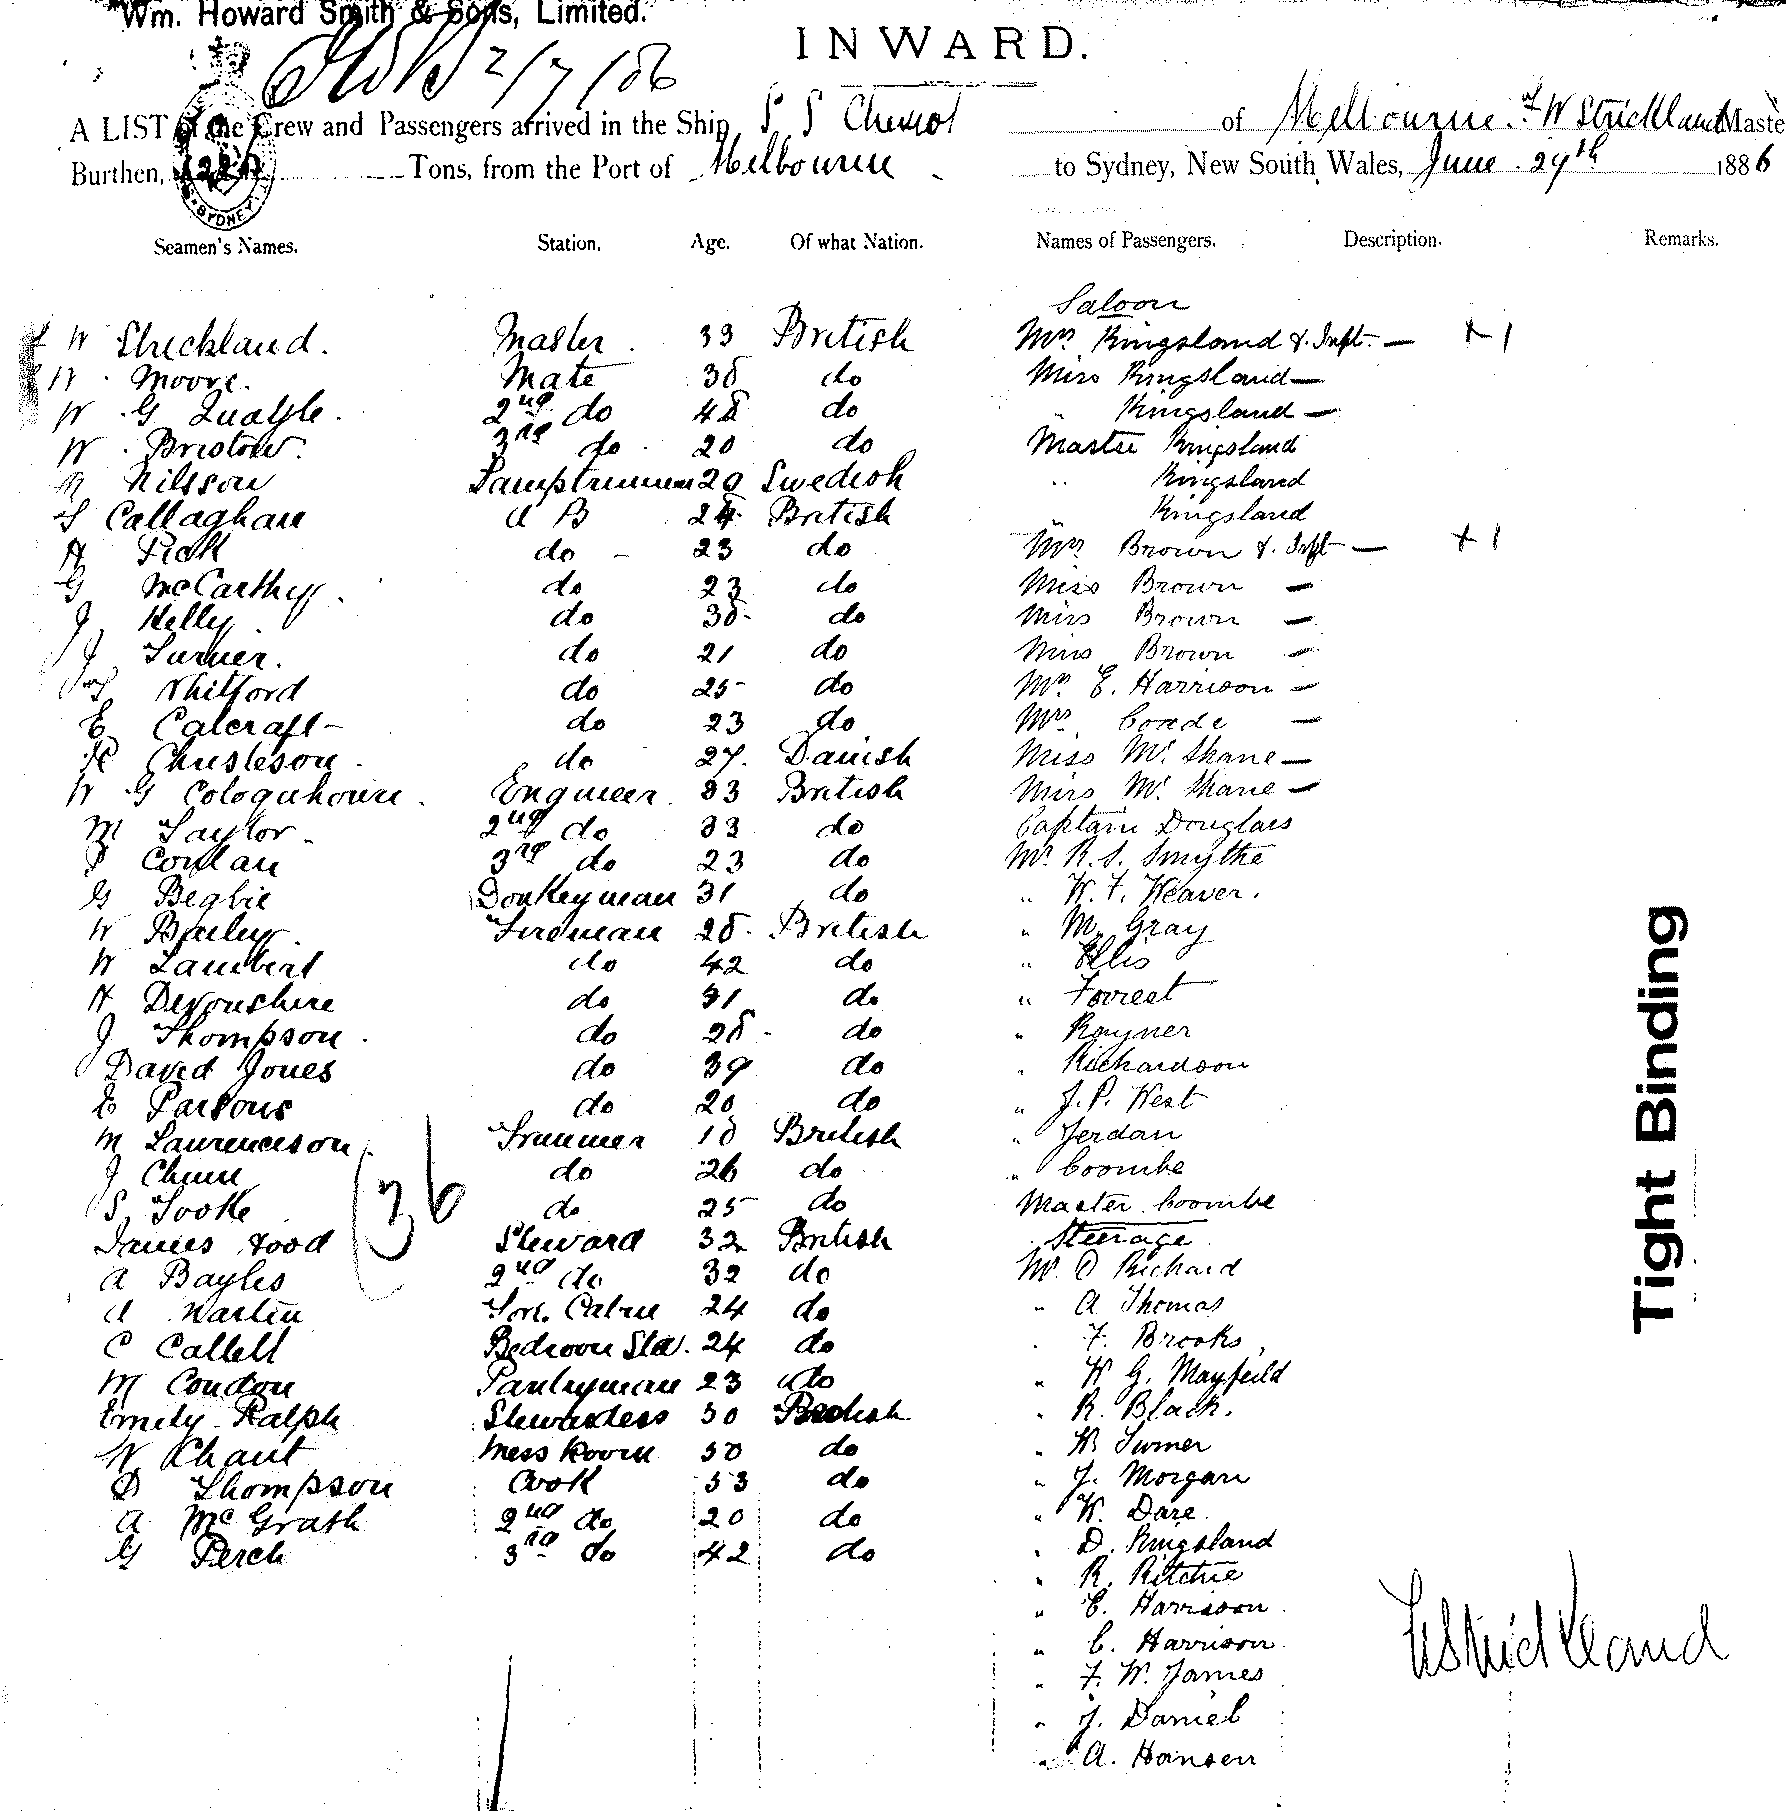 Wm. Howard Smith & Sons, Limited.
INWARD.
2/7/86
A LIST of the Crew and Passengers arrived in the Ship S S Cheviot of Melbourne. W Strickland Maste
Burthen, Tons, from the Port of Melbourne to Sydney, New South Wales, June 29th 1886
SYDNEY
Seamen's Names. Station. Age. Of what Nation. Names of Passengers. Description. Remarks.
Saloon
W Strickland. Master. 33 British Mrs Kingsland & Inft. — + 1
Moore. Mate 38 do Miss Kingsland —
W. G Quayle. 2nd do 48 do " Kingsland —
W. Bristow. 3rd do 20 do Master Kingsland
Nilsson Lamptrimmer 29 Swedish " Kingsland
Callaghan A B 24 British " Kingsland
H Pick do - 23 do Mrs Brown & Inft — + 1
G McCarthy. do 23 do Miss Brown —
J Kelly. do 38 do Miss Brown —
J Turner. do 21 do Miss Brown —
Whitford do 25 do Mrs E. Harrison —
E Calcraft do 23 do Mrs Coade —
Christeson do 27. Danish Miss Mc Shane —
W G Cologuhoun. Engineer. 33 British Miss Mc Shane —
M Taylor. 2nd do 33 do Captain Douglass
Conlan 3rd do 23 do Mr R. S. Smythe
G Begbie Donkeyman 31 do " W. F. Weaver.
W Bailey. Fireman 28. British " M. Gray
W Lambert do 42 do " Ellis
H Devonshire do 31 do " Forrest
J Thompson. do 28 - do " Rayner
David Jones do 39 do " Richardson
E Parsons do 20 do " J. P. West
M Laurenceson Trimmer 18 British " Jerdan
J Chun do 26 do " Coombe
S Tooke do 25 do Master Coombe
36
James Hood Steward 32 British Steerage
A Bayles 2nd do 32 do Mr O Richard
A Martin For. Cabin 24 do " A Thomas
C Callell Bedroom Std. 24 do " F. Brooks
M Condon Pantryman 23 do " W G. Mayfeild
Emily Ralph Stewardess 30 British " R. Black.
W Chant Mess Room 30 do " W. Turner
D Thompson Cook 53 do " J. Morgan
A McGrath 2nd do 20 do " W. Dare
G Perch 3rd do 42 do " D. Kingsland
" R. Ritchie
" E. Harrison
" C. Harrison
" F. W. James
" J. Daniel
" A. Hansen
Strickland
Tight Binding